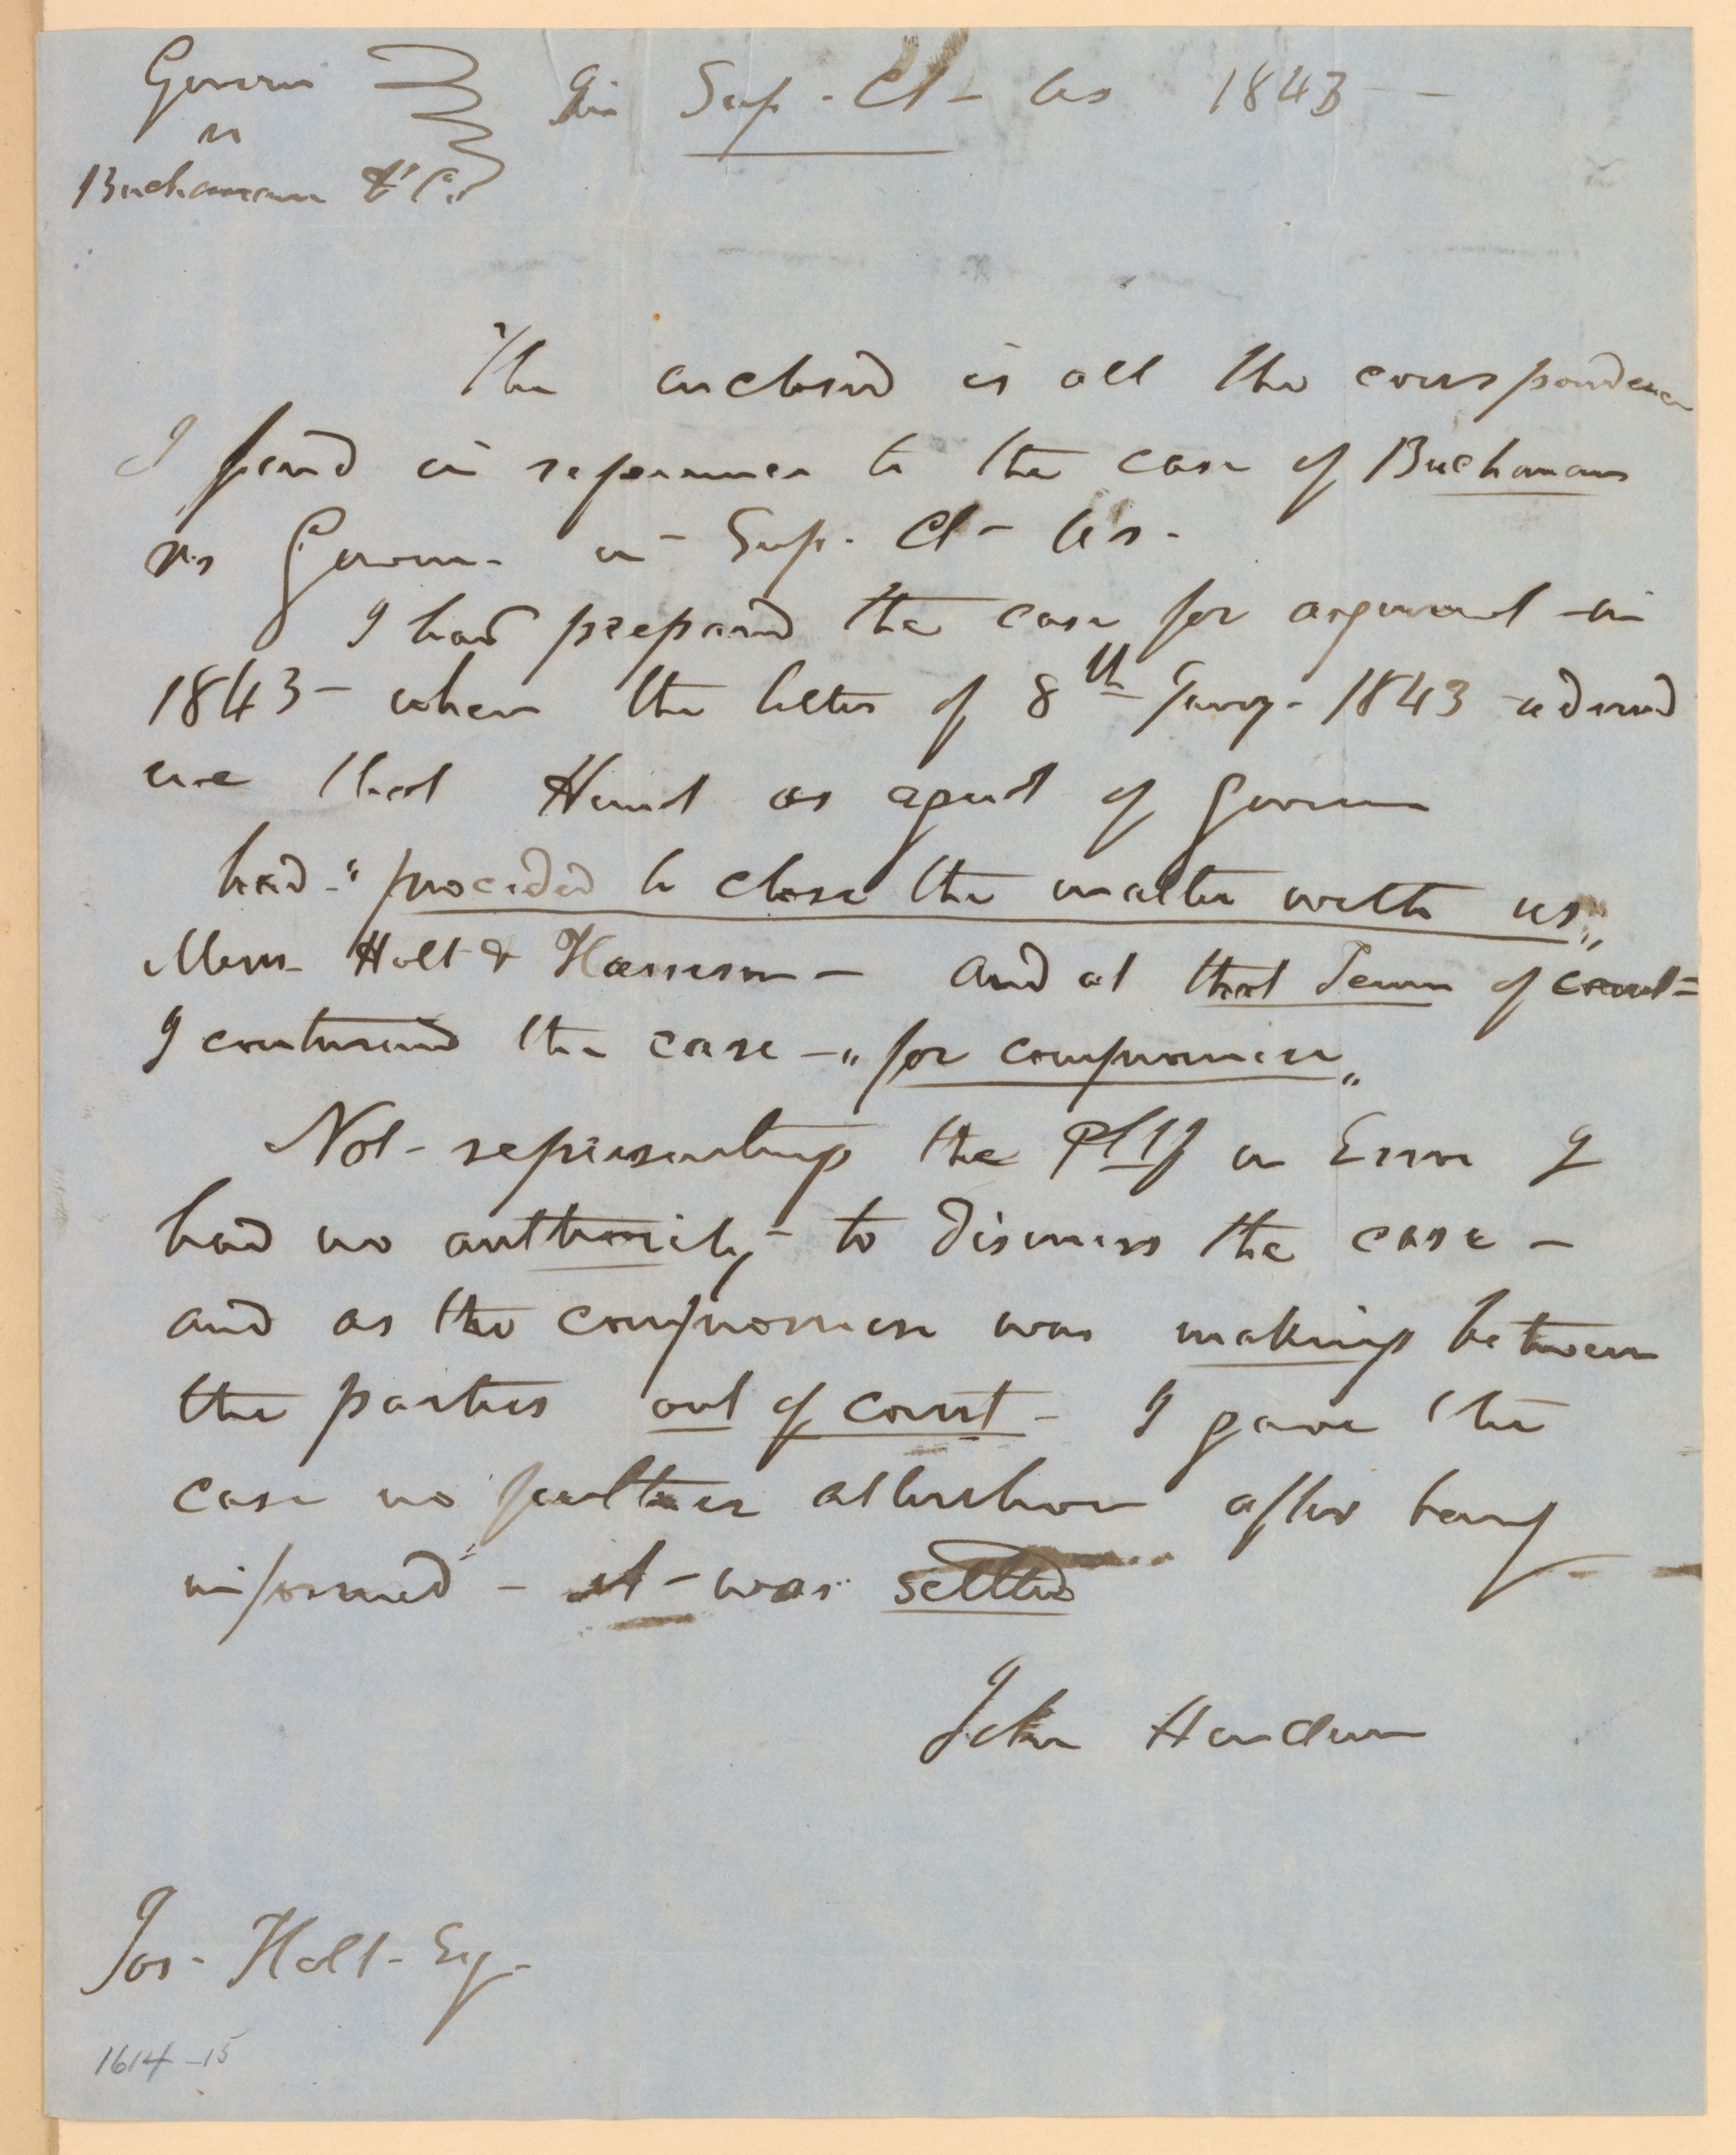 Govern
vs
Buchanan & Co.
In Sup. Ct - U.S. 1843 -
The enclosed is all the correspondence
I find in reference to the case of Buchanan
vs Govern. in - Sup. Ct - U.S.
I had prepared the case for argument in
1843 - when the letter of 8th Jany. 1843 advised
me that Hunt as agent of Govern
had - "proceeded to close the matter with us"
Messrs Holt & Harrison - and at that Term of court -
I continued the case - "for compromise"
Not - representing the Pltff in Error I
had no authority - to dismiss the case -
and as the compromise was making between
the parties out of court - I gave the
case no further attention after being
informed - it - was settled
John Henderson
Jos. Holt - Esq -
1614-15